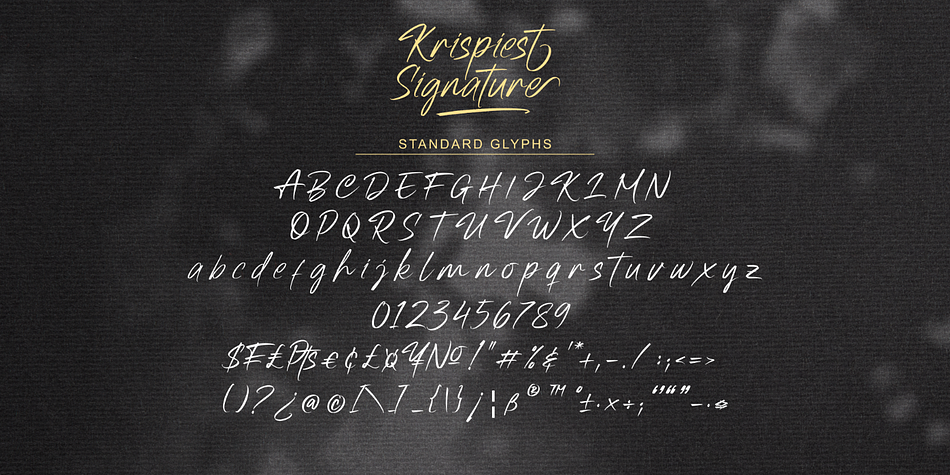 Krispiest
Signature
STANDARD GLYPHS
ABCDEFGHIJKLMN
OPQRSTUVWXYZ
abcdefghijklmnopqrstuvwxyz
0123456789
$₣₤₧$€¢£¤¥№!"#%&'*+,-./:;<=>
()?¿@©[\]_{|}¡¦ß®™°±·×÷;‘’“”–·≤